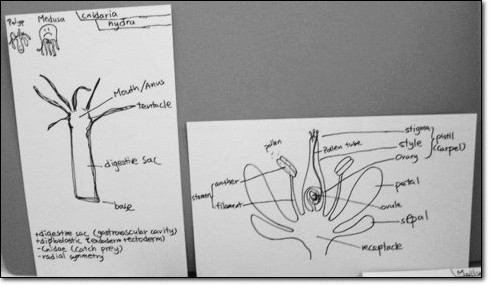 Polyp
Medusa
Cnidaria
hydra
Mouth/Anus
tentacle
digestive sac
base
+digestive sac (gastrovascular cavity)
+diploblastic
-Cnidae (catch prey)
-radial symmetry
pollen
stigma
Pollen tube
style
Ovary
pistil
(carpel)
anther
stamen
filament
petal
ovule
sepal
receptacle